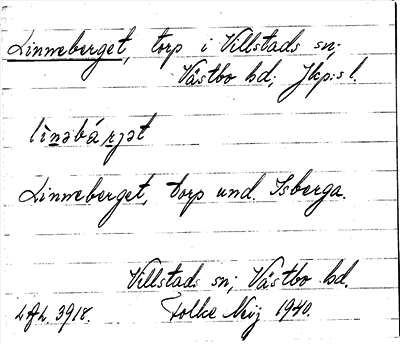 Linneberget, torp i Villstads sn;
Västbo hd; Jkp:s l.
lìnəbá rjət
Linneberget, torp und. Isberga.
Villstads sn; Västbo hd.
3918. Folke Meij 1940.